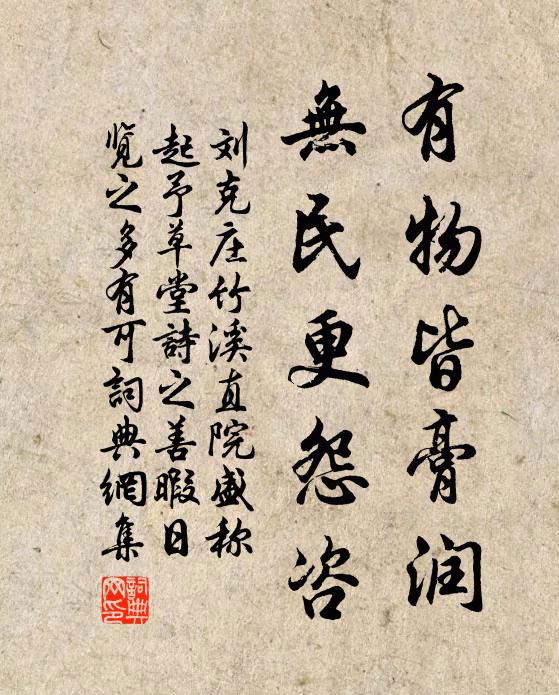 有物皆膏润
無民更怨咨
刘克庄竹溪直院盛称
起予草堂詩之善暇日
览之多有可詞典網集
詞典网印